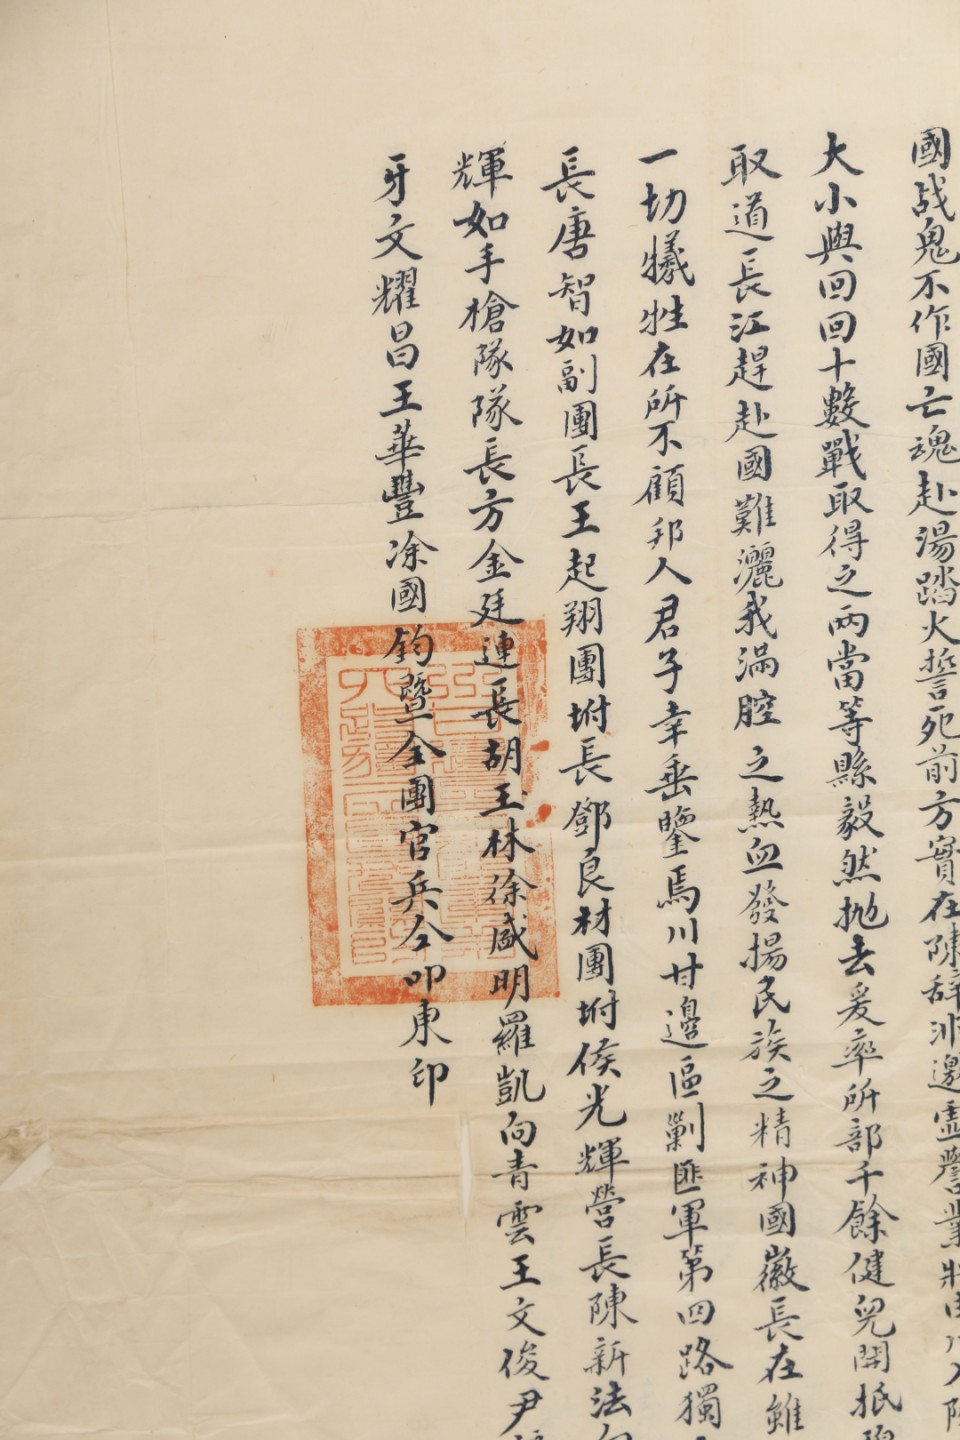 國战鬼不作國亡魂赴湯踏火誓死前方實在陳辞川邀虛譽業將由川入
大小與回回十數戰取得之两當等縣毅然抛去爰率所部千餘健兒開抵
取道長江趕赴國難灑我滿腔之熱血發揚民族之精神國徽長在雖
一切犧牲在所不顧邦人君子幸垂鑒焉川甘邊區剿匪軍第四路獨
長唐智如副團長王起翔團坿長鄧良材團坿侯光輝營長陳新法
輝如手槍隊隊長方金廷連長胡玉林徐咸明羅凱向青雲王文俊尹
牙文耀昌王華豐凃國鈞暨全團官兵仝叩東印